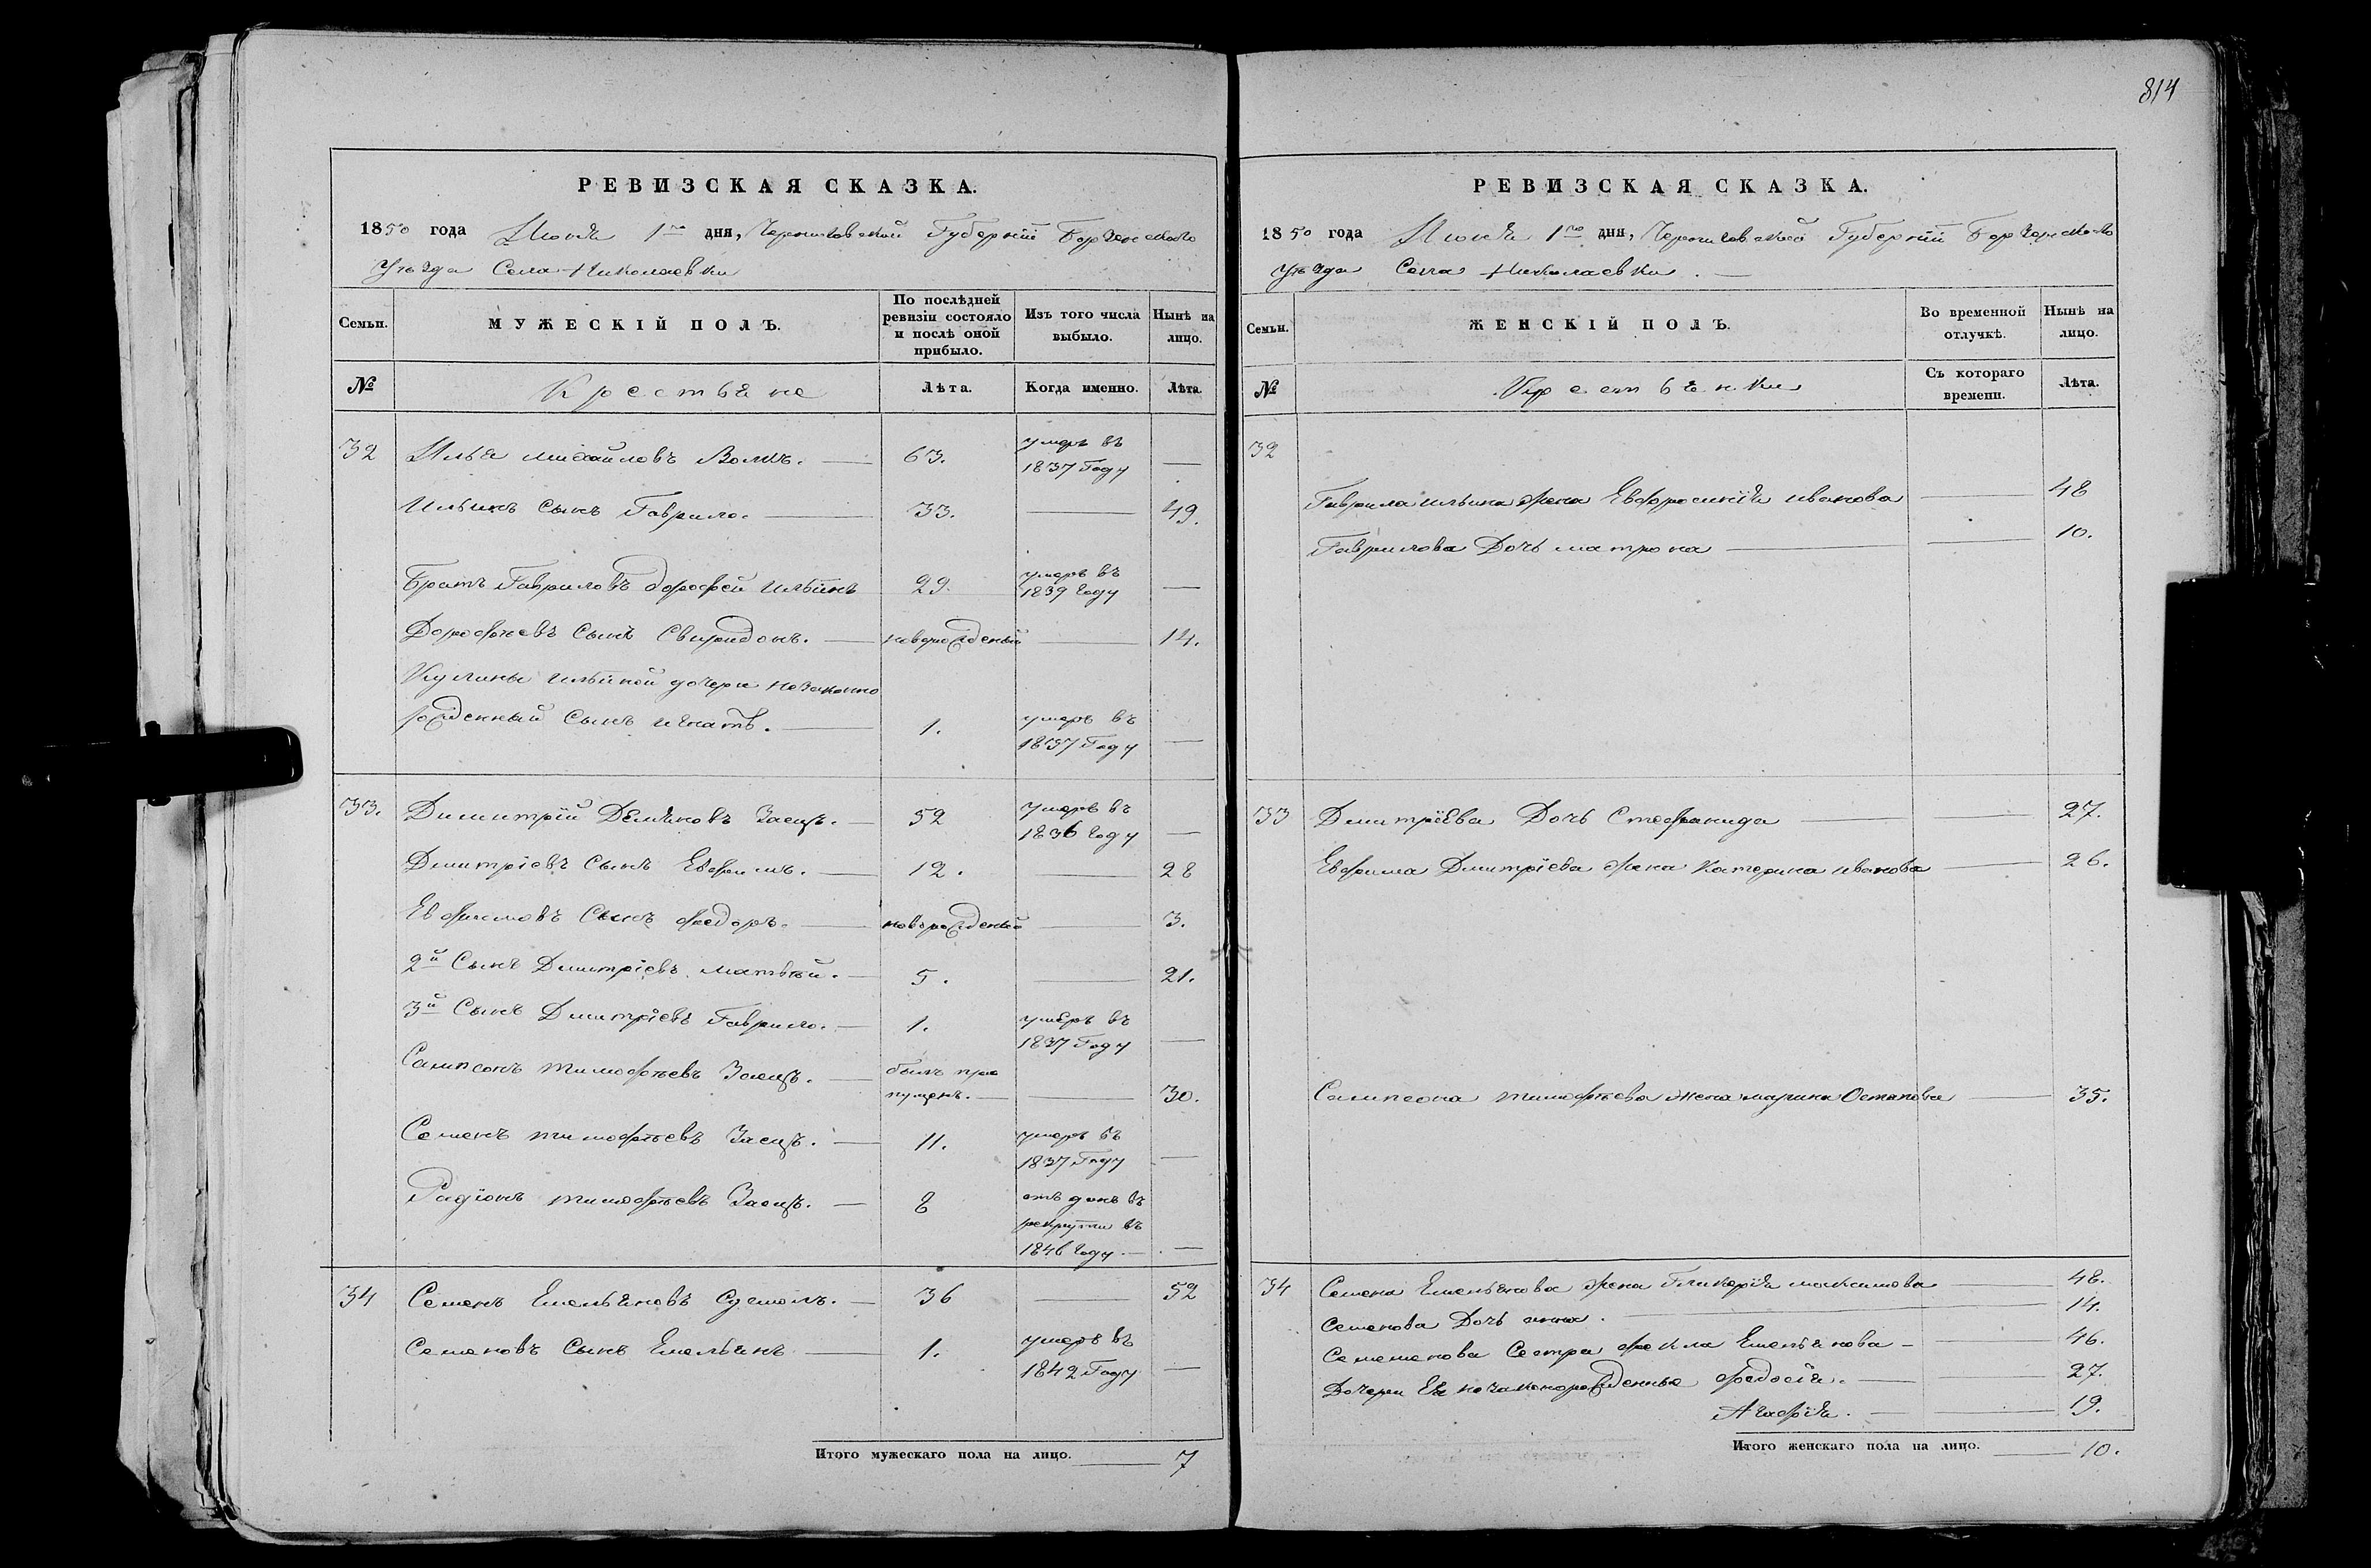 814
РЕВИЗСКАЯ СКАЗКА.
1850 года Июня 1го дня, Черниговской Губерніи Борзенского
Уѣзда Села Николаевки
Семьи.
МУЖЕСКІЙ ПОЛЪ.
По послѣдней ревизіи состояло и послѣ оной прибыло.
Изъ того числа выбыло.
Нынѣ на лицо.
№
Крестьяне
Лѣта.
Когда именно.
Лѣта.
32 Илья михайловъ Волкъ. — 63. умеръ въ 1837 Году —
Ильинъ Сынъ Гаврило. — 33. — 49.
Братъ Гавриловъ дорофей Ильинъ 29. умеръ въ 1839 Году —
Дорофѣевъ Сынъ Свиридонъ. — новорожденый — 14.
Кулины Ильиной дочери незаконно
рожденный Сынъ игнатъ. — 1. умеръ въ 1837 Году —
33. Димитрій Демяновъ Заецъ. — 52 умеръ въ 1836 Году —
Дмитріевъ Сынъ Евфимъ. — 12. — 28
Евфимовъ Сынъ федоръ. — новорожденый — 3.
2й Сынъ Дмитріевъ матвѣй. — 5. — 21.
3й Сынъ Дмитріевъ Гаврило. — 1. умеръ въ 1837 Году —
Сампсонъ тимофѣевъ Заецъ. — былъ про
пущенъ. — — 30.
Семенъ тимофѣевъ Заецъ. — 11. умеръ въ 1837 Году —
Радіонъ тимофѣевъ Заецъ. — 8 отъ данъ въ
рекруты въ
1846 Году. — —
34 Семенъ Емельяновъ — 36 — 52
Семеновъ Сынъ Емельянъ — 1. умеръ въ 1842 Году —
Итого мужескаго пола на лицо. — 7
РЕВИЗСКАЯ СКАЗКА.
1850 года Июня 1го дня, Черниговской Губерніи Борзенского
Уѣзда Села Николаевки. —
Семьи.
ЖЕНСКІЙ ПОЛЪ.
Во временной отлучкѣ.
Нынѣ на лицо.
№
Крестьянки
Съ котораго времени.
Лѣта.
32
Гаврила ильина жена Евфросинія иванова — 48
Гаврилова Дочь матрона — — 10.
33 Дмитріева Дочь Стефанида — — 27.
Евфима Дмитріева жена Катерина иванова — 26.
Сампсона тимофѣева жена марина Остапова — 35.
34 Семена Емельянова жена Гликерія максимова — 48.
Семенова Дочь анна. — 14.
Семенова Сестра фекла Емельянова — — 46.
Дочери Ея незаконорожденные федосія. — — 27.
Агафія. — — 19.
Итого женскаго пола на лицо. — 10.